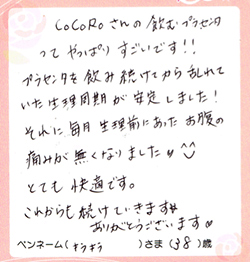 CoCoRoさんの飲むプラセンタ
ってやっぱりすごいです!!
プラセンタを飲み続けてから乱れて
いた生理周期が安定しました!
それに毎月生理前にあったお腹の
痛みが無くなりました
とても快適です。
これからも続けていきます
ありがとうございます
ペンネーム(キラキラ)さま(38)歳